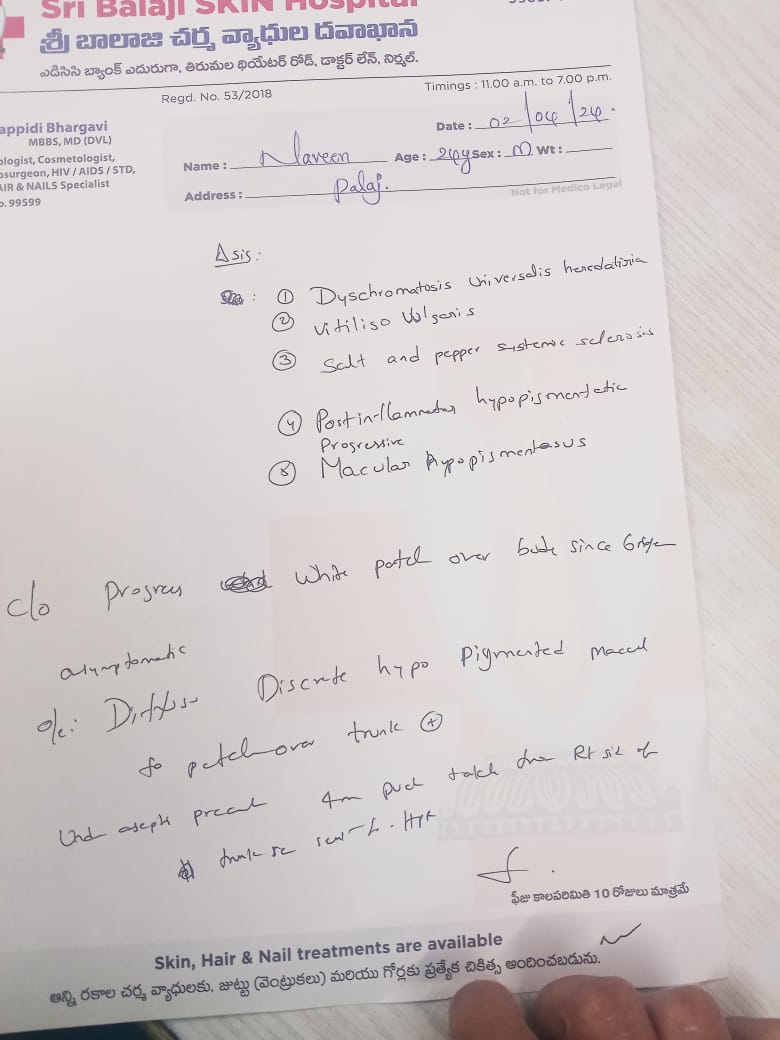 Sri Balaji SKIN Hospital
శ్రీ బాలాజి చర్మ వ్యాధుల దవాఖాన
ఎడిసిసి బ్యాంక్ ఎదురుగా, తిరుమల థియేటర్ రోడ్, డాక్టర్ లేన్, నిర్మల్.
Regd. No. 53/2018
Timings : 11.00 a.m. to 7.00 p.m.
appidi Bhargavi
MBBS, MD (DVL)
ologist, Cosmetologist,
osurgeon, HIV / AIDS / STD,
AIR & NAILS Specialist
o. 99599
Date : 02/04/24.
Name : Naveen Age : 24y Sex : M Wt :
Address : Palaj.
Not for Medico Legal
Δsis:
① Dyschromatosis Universalis heredatiria
② Vitiliso Vulgaris
③ Salt and pepper systemic sclerosis
④ Postinflammatory hypopigmentatic
Progressive
⑤ Macular hypopigmentasus
c/o Progress White patch over body since
asymptomatic
o/e: Discrete hypo Pigmented macul
to patch over trunk ⊕
Und aseptic precaut 4m punch Rt side of
trunk
ఫీజు కాలపరిమితి 10 రోజులు మాత్రమే
Skin, Hair & Nail treatments are available
అన్ని రకాల చర్మ వ్యాధులకు, జుట్టు (వెంట్రుకలు) మరియు గోర్లకు ప్రత్యేక చికిత్స అందించబడును.